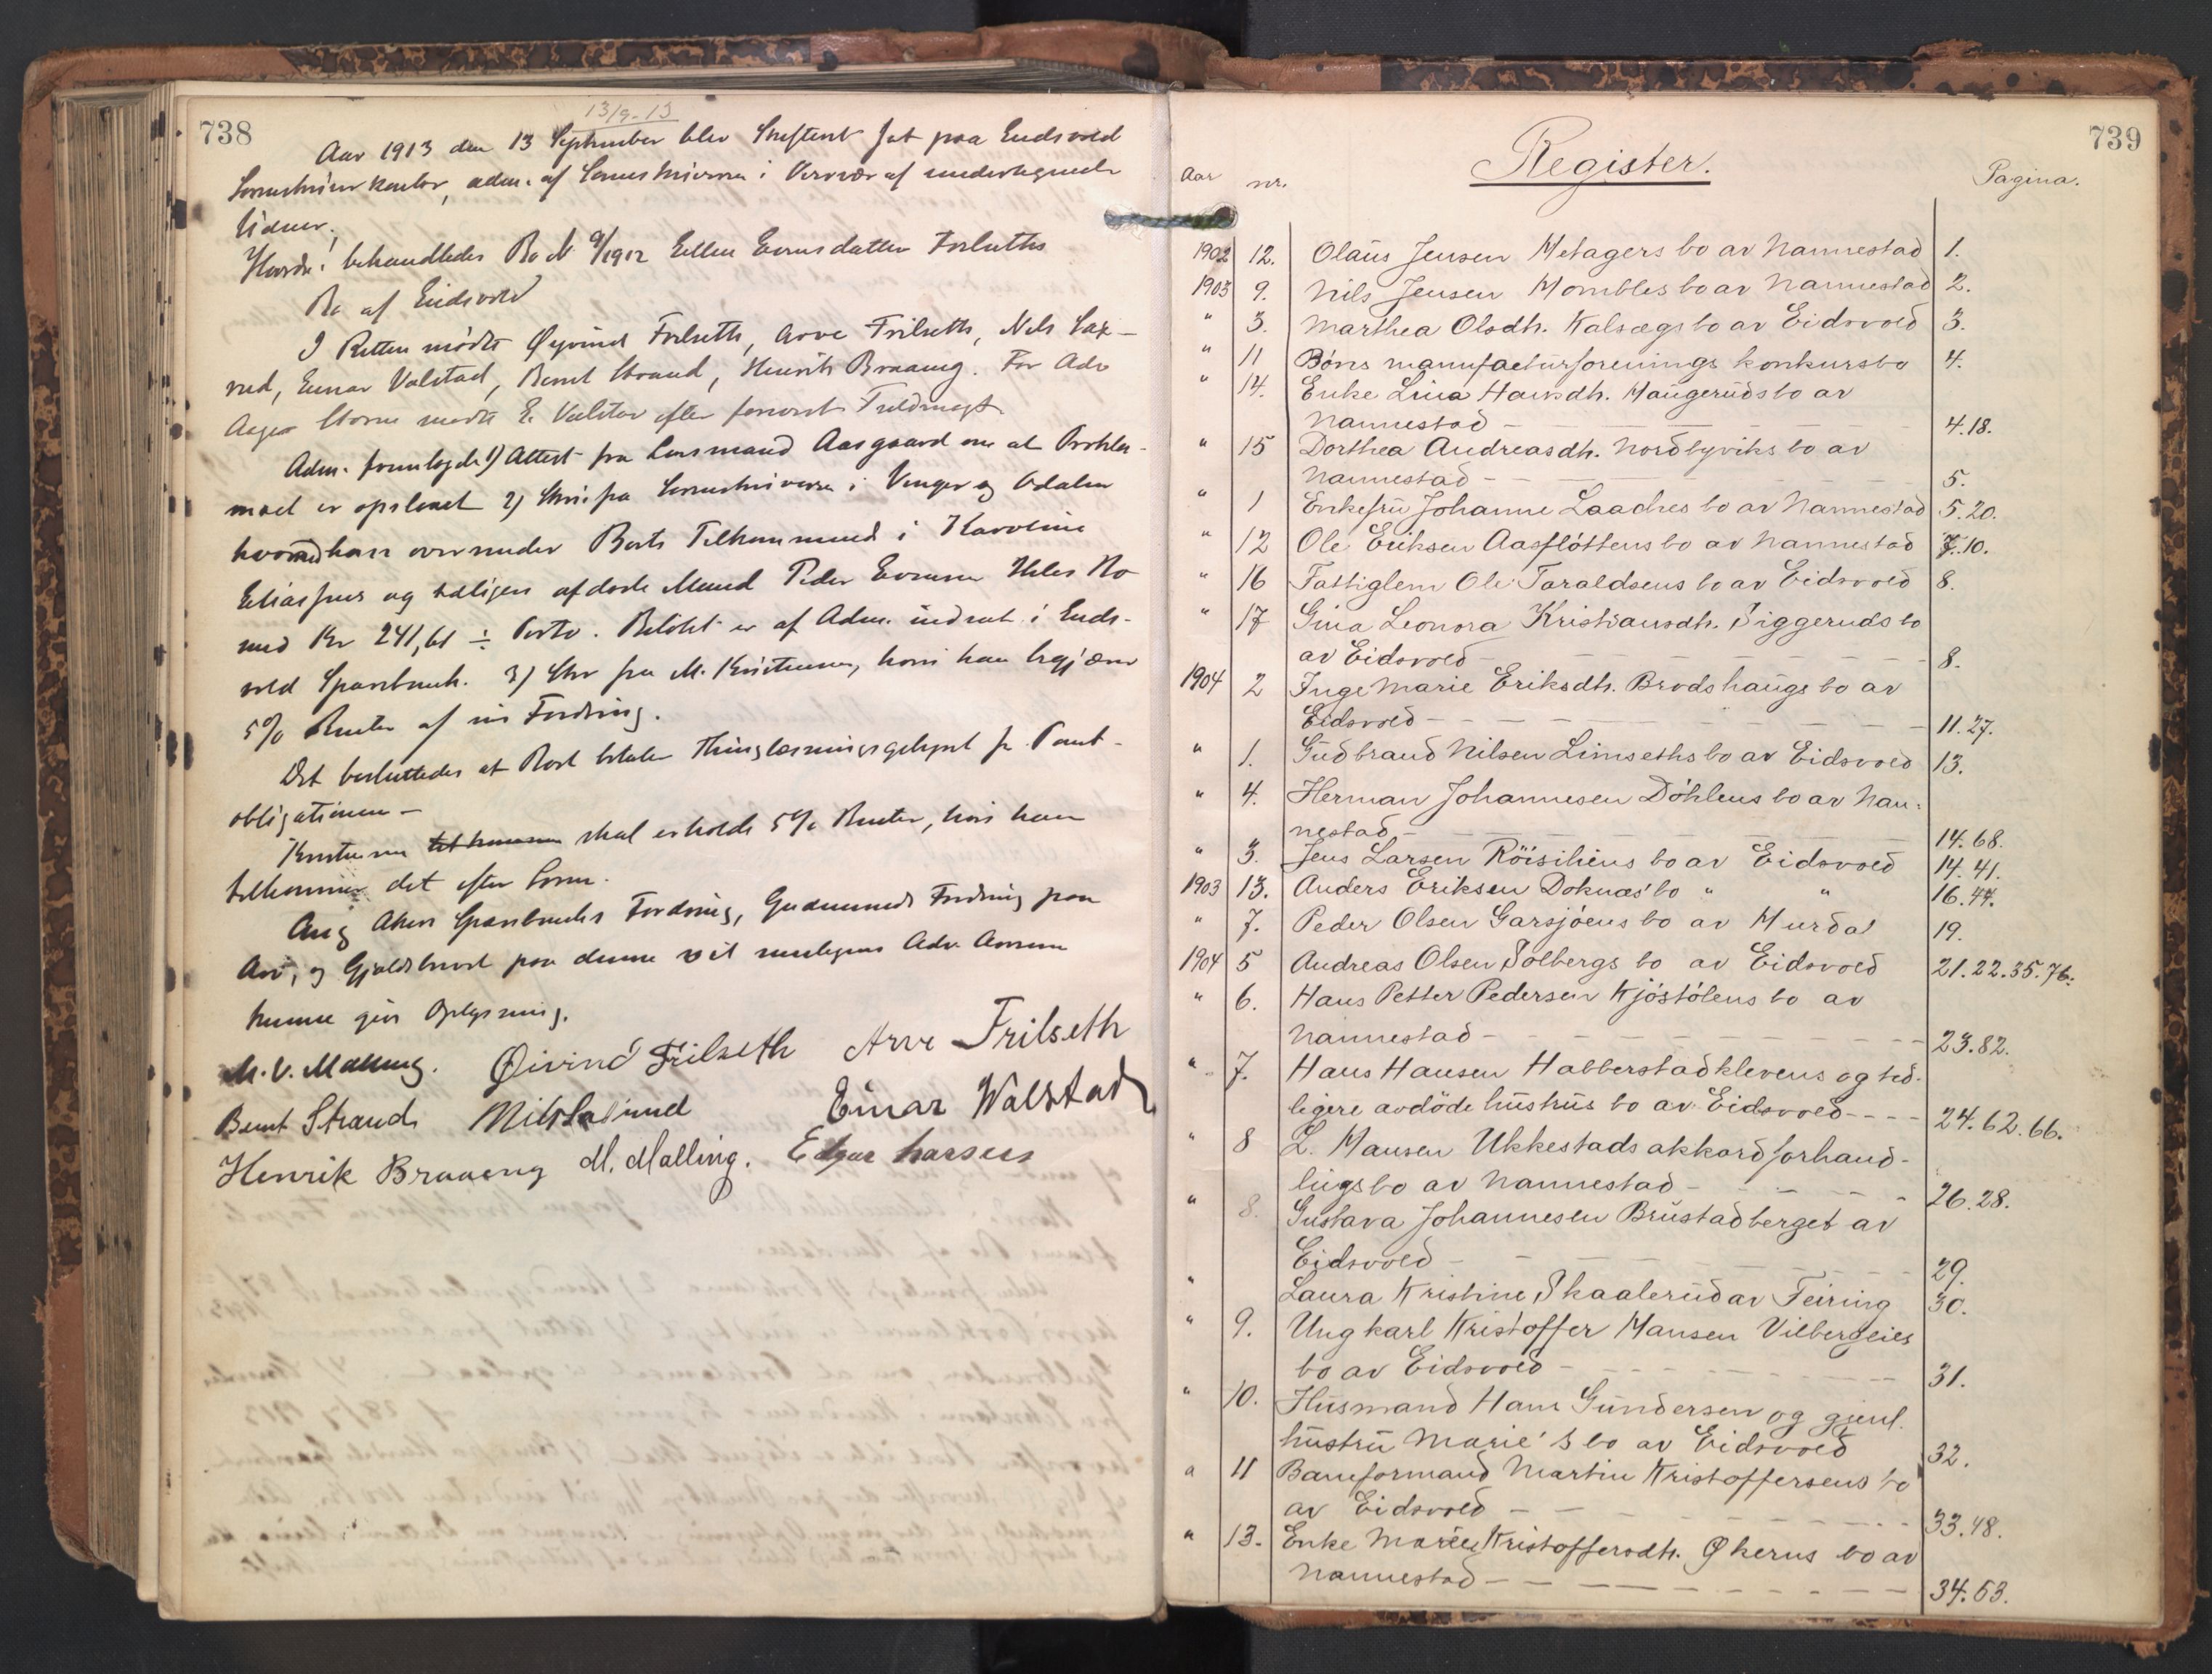 738
13/9-13
Aar 1913 den 13 September blev Skifteret sat paa Eidsvold
Sorenskriverkontor, adm. af Sorenskriveren i Overvær af undertegnede
Vidner.
Hvorda: behandledes Bo N 9/1912 Ellen Evensdatter Frilseths
Bo af Eidsvold
I Retten mødte Øyvind Frilseth, Arve Frilseth, Nils Lax-
rud, Einar Valstad, Bernt Strand, Henrik Braaeng. For Adv
Aages Storm mødte E. Valstad efter Fuldmagt.
Adm. fremlagde 1) Attest fra Lensmand Aasgaard om at Prokla-
maet er opslaaet 2) Skr. fra Sorenskriveren i Vinger og Odalen
hvormed han oversender Boets Tilkommende i Karoline
Eliasens og tidligere afdøde Mand Peder Evensen Bo
med Kr 241,61 ÷ Porto. Beløbet er af Adm. indsat i Eids-
vold Sparebank. 3) Skr fra M. Kristiansen, hvori han begjærer
5% Renter af sin Fordring.
Det besluttedes at Boet betaler Thinglæsningsgebyret for Pant-
obligationen –
skal erholde 5% Renter, hvis han
tilkommer det efter Loven.
Ang Akers Sparebanks Fordring, Gudmunds Fordring paa
Arv, og Gjeldsbevis paa denne vil muligens Adv.
kunne give Oplysning.
M. V. Malling. Øivind Frilseth Arve Frilseth
Bernt Strand Nils Laxrud Einar Walstad
Henrik Braaeng M. Malling. Edgar Larsen
739
Register.
Aar nr. Pagina.
1902 12. Olaus Jensen Metagers bo av Nannestad 1.
1903 9. Nils Jensen Mombles bo av Nannestad 2.
" 3. Marthea Olsdtr. Kalsægs bo av Eidsvold 3.
" 11 Böns manufacturforenings konkursbo 4.
" 14. Enke Lina Hansdtr. Haugeruds bo av
Nannestad - 4.18.
" 15 Dorthea Andreasdtr. Nordbyviks bo av
Nannestad - 5.
" 1 Enkefru Johanne Laaches bo av Nannestad 5.20.
" 12 Ole Eriksen Aasfløttens bo av Nannestad 7.10.
" 16 Fattiglem Ole Taraldsens bo av Eidsvold 8.
" 17 Gina Leonora Kristiansdtr. Siggeruds bo
av Eidsvold - 8.
1904 2 Inge Marie Eriksdtr. Brodshaugs bo av
Eidsvold - 11.27.
" 1. Gudbrand Nilsen Limseths bo av Eidsvold 13.
" 4. Herman Johannesen Döhlens bo av Nan-
nestad - 14.68.
" 3. Jens Larsen Röisiliens bo av Eidsvold 14.41.
1903 13. Anders Eriksen Doknæs' bo " " 16.44.
" 7. Peder Olsen Garsjöens bo av Hurdal 19.
1904 5 Andreas Olsen Solbergs bo av Eidsvold 21.22.35.76.
" 6. Hans Petter Pedersen Kjöstölens bo av
Nannestad - 23.82.
" 7. Hans Hansen Habberstadklevens og tid-
ligere avdöde hustrus bo av Eidsvold - 24.62.66.
" 8 L. Hansen Ukkestads akkordforhand-
lingsbo av Nannestad - 26.28.
" 8. Gustava Johannesen Brustadberget av
Eidsvold - 29.
" Laura Kristine Skaalerud av Feiring 30.
" 9. Ungkarl Kristoffer Hansen Vilbergeies
bo av Eidsvold - 31.
" 10. Husmand Hans Gundersen og gjenl.
hustru Marie's bo av Eidsvold 32.
" 11 Baneformand Martin Kristoffersens bo
av Eidsvold - 33.48.
" 13. Enke Maren Kristoffersdtr. Økerns bo av
Nannestad - 34.53.